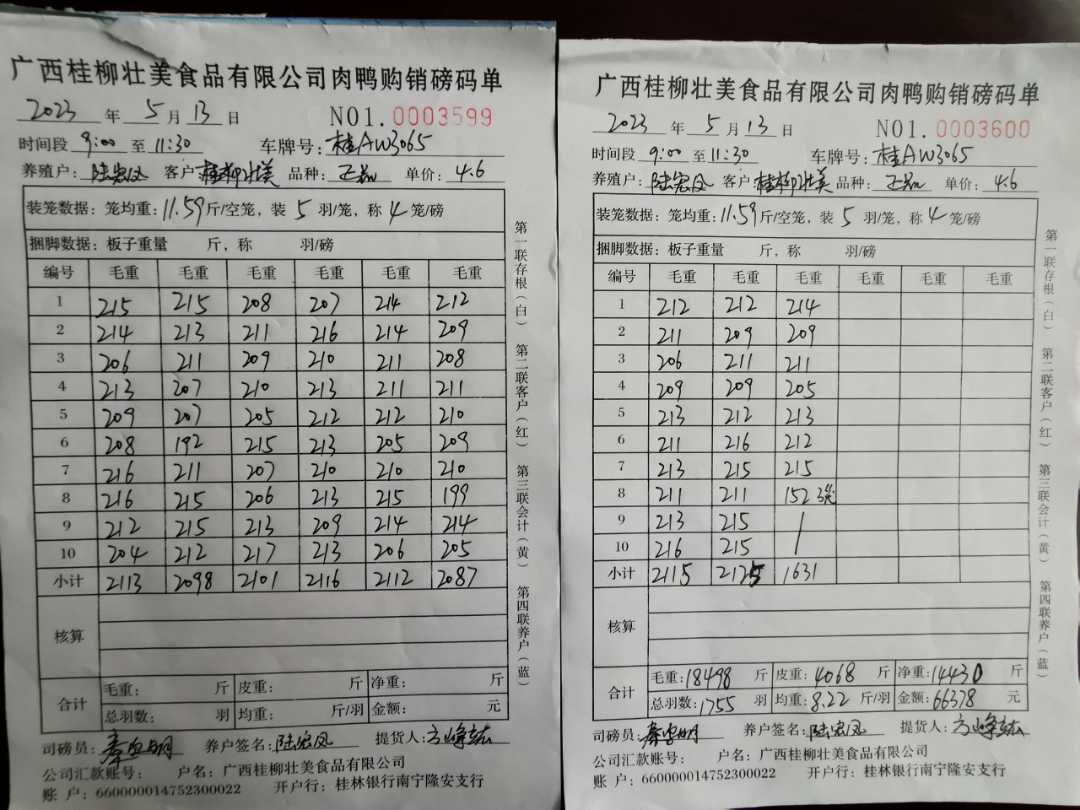 广西桂柳壮美食品有限公司肉鸭购销磅码单
2023 年 5 月 13 日 NO1.0003599
时间段 9:00 至 11:30 车牌号: 桂AW3065
养殖户: 陆宏凤 客户: 桂柳壮美 品种: 单价: 4.6
装笼数据: 笼均重: 11.59 斤/空笼, 装 5 羽/笼, 称 4 笼/磅
捆脚数据: 板子重量 斤, 称 羽/磅
编号 毛重 毛重 毛重 毛重 毛重 毛重
1 215 215 208 207 214 212
2 214 213 211 216 214 209
3 206 211 209 210 211 208
4 213 207 210 213 211 211
5 209 207 205 212 212 210
6 208 192 215 213 205 209
7 216 211 207 210 210 210
8 216 215 206 213 215 199
9 212 215 213 209 214 214
10 204 212 217 213 206 205
小计 2113 2098 2101 2116 2112 2087
核算
合计 毛重: 斤 皮重: 斤 净重: 斤
总羽数: 羽 均重: 斤/羽 金额: 元
司磅员: 养户签名: 陆宏凤 提货人:
公司汇款账号: 户名: 广西桂柳壮美食品有限公司
账 户: 660000014752300022 开户行: 桂林银行南宁隆安支行
第一联存根(白) 第二联客户(红) 第三联会计(黄) 第四联养户(蓝)
广西桂柳壮美食品有限公司肉鸭购销磅码单
2023 年 5 月 13 日 NO1.0003600
时间段 9:00 至 11:30 车牌号: 桂AW3065
养殖户: 陆宏凤 客户: 桂柳壮美 品种: 单价: 4.6
装笼数据: 笼均重: 11.59 斤/空笼, 装 5 羽/笼, 称 4 笼/磅
捆脚数据: 板子重量 斤, 称 羽/磅
编号 毛重 毛重 毛重 毛重 毛重 毛重
1 212 212 214
2 211 209 209
3 206 211 211
4 209 209 205
5 213 212 213
6 211 216 212
7 213 215 215
8 211 211 152 3笼
9 213 215 /
10 216 215 /
小计 2115 2125 1631
核算
合计 毛重: 18498 斤 皮重: 4068 斤 净重: 14430 斤
总羽数: 1755 羽 均重: 8.22 斤/羽 金额: 66378 元
司磅员: 养户签名: 陆宏凤 提货人:
公司汇款账号: 户名: 广西桂柳壮美食品有限公司
账 户: 660000014752300022 开户行: 桂林银行南宁隆安支行
第一联存根(白) 第二联客户(红) 第三联会计(黄) 第四联养户(蓝)